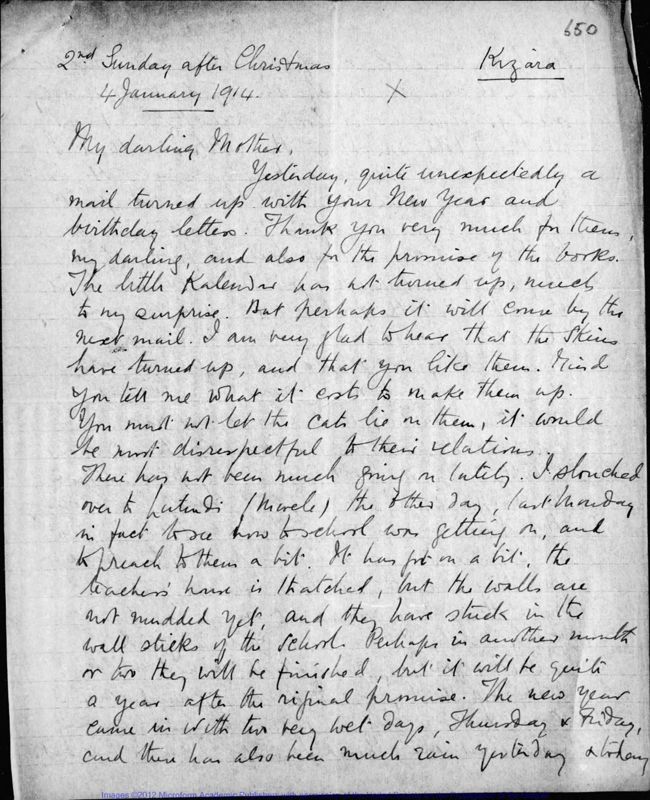 650
2nd Sunday after Christmas Kizára
4 January 1914. X
My darling Mother,
Yesterday, quite unexpectedly a
mail turned up with your New Year and
birthday letters. Thank you very much for them,
my darling, and also for the promise of the books.
The little Kalendar has not turned up, much
to my surprise. But perhaps it will come by the
next mail. I am very glad to hear that the Skins
have turned up, and that you like them. Mind
you tell me what it costs to make them up.
You must not let the cats lie on them, it would
be most disrespectful to their relations.
There has not been much going on lately. I slouched
over to the other day, last Monday
in fact to see how school was getting on, and
to preach to them a bit. It has got on a bit, the
teachers' house is thatched, but the walls are
not mudded yet, and they have stuck in the
wall sticks of the School. Perhaps in another month
or two they will be finished, but it will be quite
a year after the original promise. The new year
came in with two very wet days, Thursday & Friday,
and there has also been much rain yesterday & today
Images ©2012 Microform Academic Publishers with permission of the